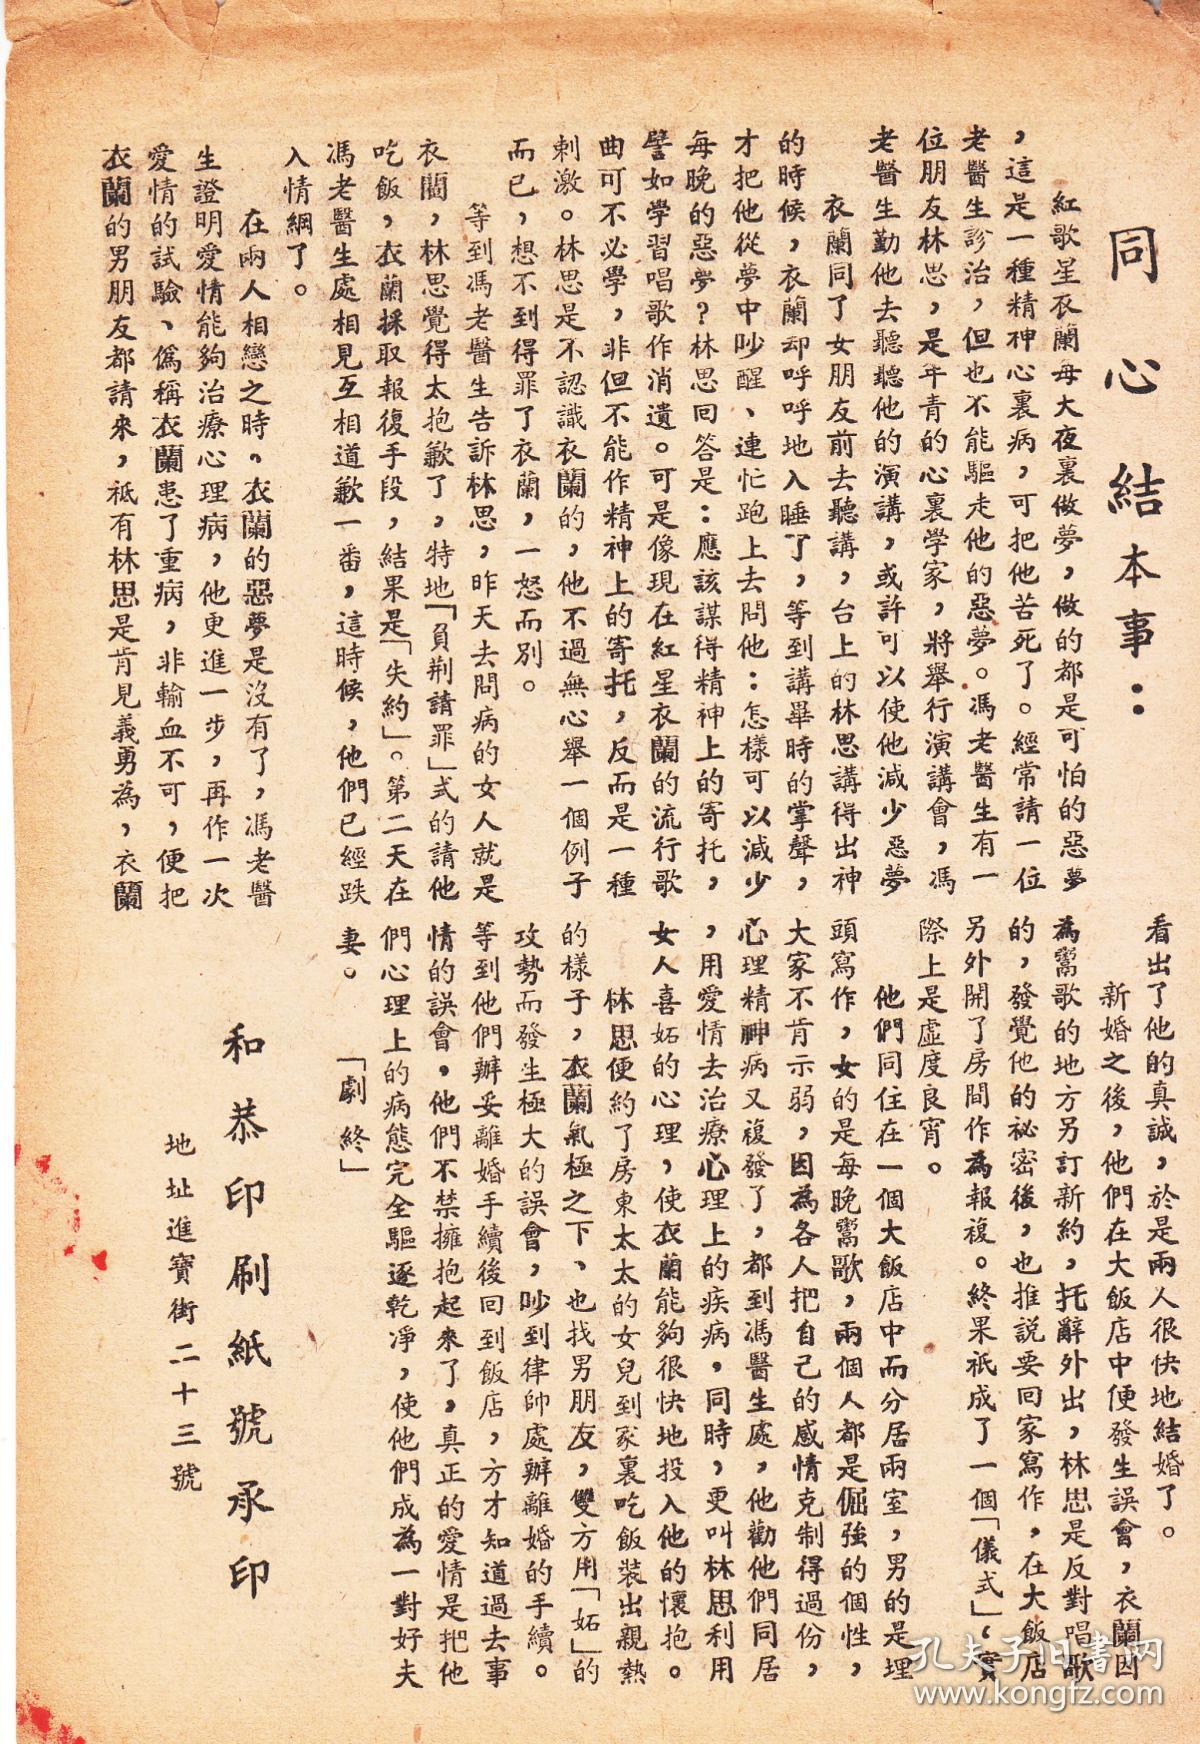 同心結本事：
紅歌星衣蘭每大夜裏做夢，做的都是可怕的惡夢
，這是一種精神心裏病，可把他苦死了。經常請一位
老醫生診治，但也不能驅走他的惡夢。馮老醫生有一
位朋友林思，是年青的心裏学家，將舉行演講會，馮
老醫生勤他去聽聽他的演講，或許可以使他減少惡夢
衣蘭同了女朋友前去聽講，台上的林思講得出神
的時候，衣蘭却呼呼地入睡了，等到講畢時的掌聲，
才把他從夢中吵醒、連忙跑上去問他：怎樣可以減少
每晚的惡夢？林思回答是：應該謀得精神上的寄托，
譬如學習唱歌作消遺。可是像現在紅星衣蘭的流行歌
曲可不必學，非但不能作精神上的寄托，反而是一種
刺激。林思是不認識衣蘭的，他不過無心舉一個例子
而已，想不到得罪了衣蘭，一怒而別。
等到馮老醫生告訴林思，昨天去問病的女人就是
衣閣，林思覺得太抱歉了，特地「負荆請罪」式的請他
吃飯，衣蘭採取報復手段，結果是「失約」。第二天在
馮老醫生處相見互相道歉一番，這時候，他們已經跌
入情綱了。
在兩人相戀之時。衣蘭的惡夢是沒有了，馮老醫
生證明愛情能夠治療心理病，他更進一步，再作一次
愛情的試驗、僞稱衣蘭患了重病，非輸血不可，便把
衣蘭的男朋友都請來，祗有林思是肯見義勇為，衣蘭
看出了他的真誠，於是兩人很快地結婚了。
新婚之後，他們在大飯店中便發生誤會，衣蘭因
為鬻歌的地方另訂新約，托辭外出，林思是反對唱歌
的，發覺他的祕密後，也推説要回家寫作，在大飯店
另外開了房間作為報複。終果祇成了一個「儀式」，實
際上是虛度良宵。
他們同住在一個大飯店中而分居兩室，男的是埋
頭寫作，女的是每晚鬻歌，兩個人都是倔強的個性，
大家不肯示弱，因為各人把自己的感情克制得過份，
心理精神病又複發了，都到馮醫生處，他勸他們同居
，用愛情去治療心理上的疾病，同時，更叫林思利用
女人喜妬的心理，使衣蘭能夠很快地投入他的懷抱。
林思便約了房東太太的女兒到家裏吃飯装出親熱
的樣子，衣蘭氣極之下、也找男朋友，雙方用「妬」的
攻勢而發生極大的誤會，吵到律帥處辦離婚的手續。
等到他們辦妥離婚手續後回到飯店，方才知道過去事
情的誤會，他們不禁擁抱起來了，真正的愛情是把他
們心理上的病態完全驅逐乾凈，使他們成為一對好夫
妻。
「劇終」
和恭印刷紙號承印
地址進寶街二十三號
孔夫子旧书网
www.kongfz.com